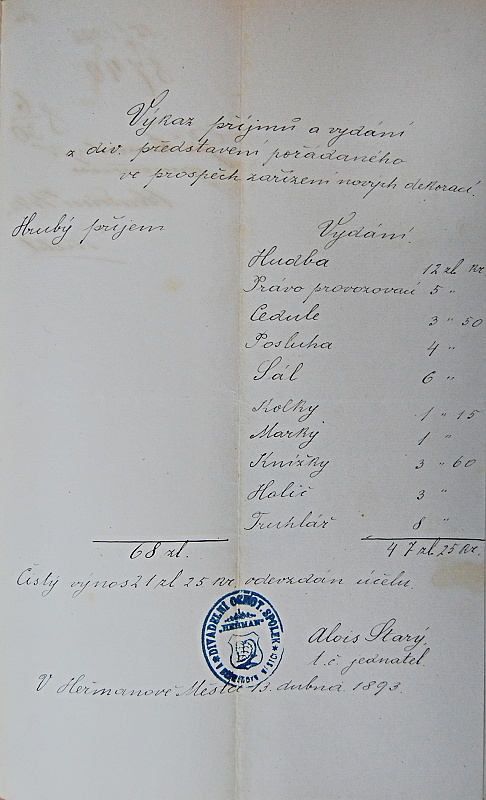 Výkaz příjmů a vydání
z div. představení pořádaného
ve prospěch zařízení nových dekorací.
Hrubý příjem
Vydání.
Hudba 12 zl Kr
Právo provozovací 5 "
Cedule 3 " 50
Posluha 4 "
Sál 6 "
Kolky 1 " 15
Marky 1 "
Knížky 3 " 60
Holič 3 "
Truhlář 8 "
68 zl. 47 zl. 25 Kr.
Čistý výnos 21 zl 25 Kr odevzdán účelu.
DIVADELNÍ OCHOT. SPOLEK
"HEŘMAN"
Alois Starý,
t. č. jednatel.
V Heřmanově Městci 13. dubna 1893.